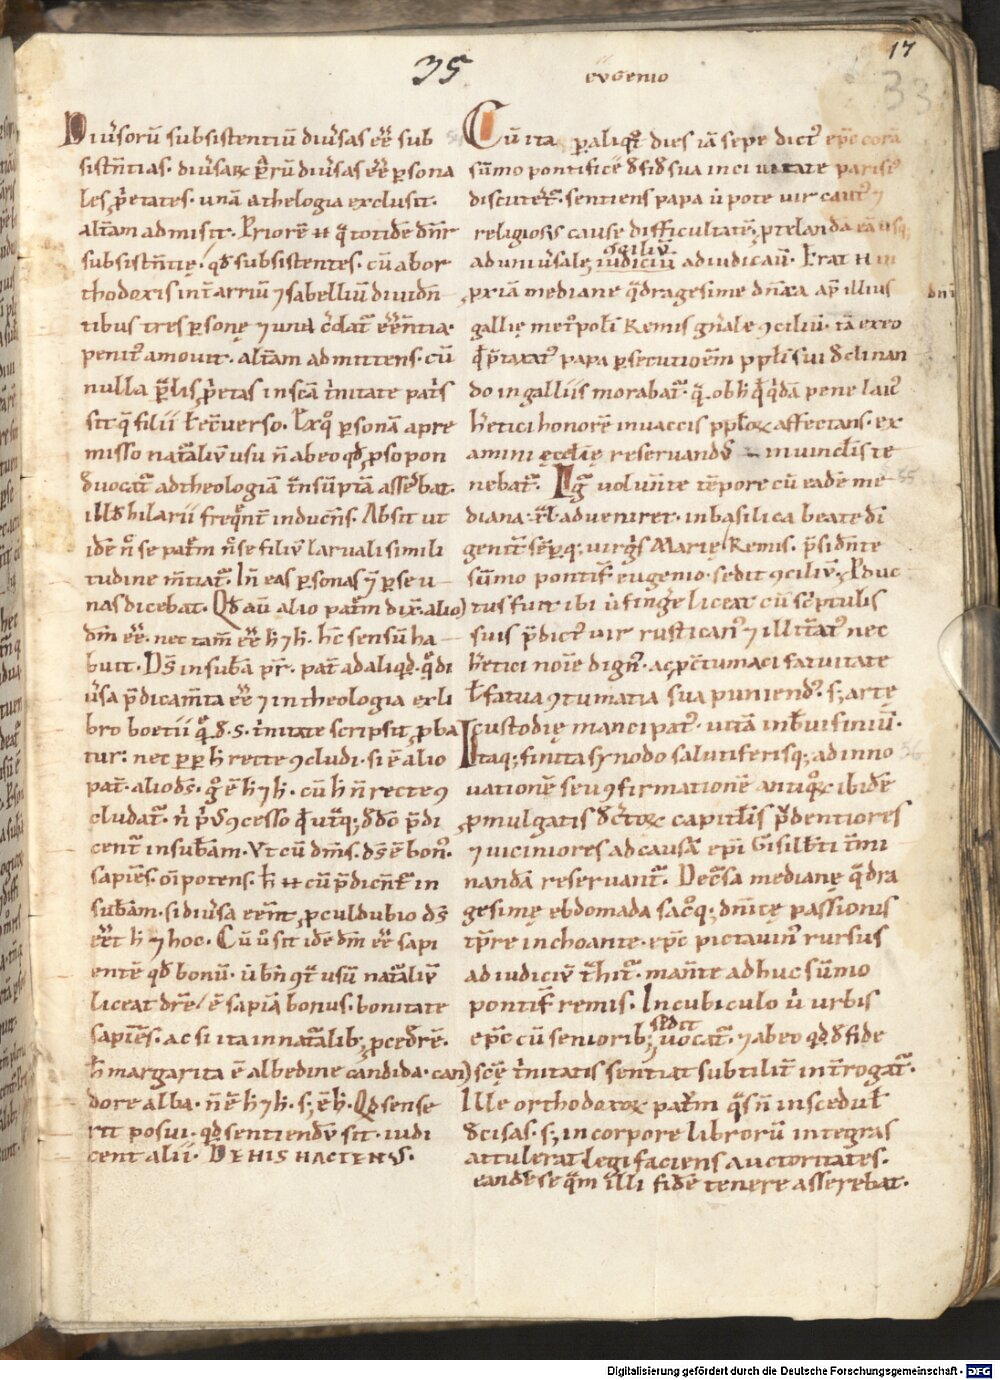 17
35
eugenio
33
Diu̓soru̅ subsistentiu̅ diu̓sas ee̅ sub
siste̅tias. diu̓saꝝ reru̅ diu̓sas ee̅ ꝑsona
les ꝓ̓etates. una̅ a theologia exclusit.
alt̓am admisit. Priore̅
subsiste̅tię. qd̓ subsistentes. cu̅ ab or
thodoxis int̓ arriu̅ ⁊ sabelliu̅ diuide̅
tibus tres ꝑsonę ⁊ una
penit᷒ amouit. alt̓am admittens. cu̅
nulla ꝓ̓etas in sc̅a t̓nitate pat̓s
sit q̓ filii ł eꝯuerso. Ex qͦ ꝑsona̅ a pre
misso nat̓aliu̅ usu n̅ ab eo qd̓ ꝑ so pon
d̓ uocat̓ ad theologia̅ t̓nsu̅pta̅ asse̓bat.
illd̓ hilarii freq̓nt̓ induce̅s. Absit ut
ide̅ n̅ se pat̓m n̅ se filiu̅ laruali simili
tudine me̅tiat̓. In̅ eas ꝑsonas ⁊ ꝑ se u
nas dicebat. Qd̓ au̅ alio pat̓m dix̅. alio
dm̅ ee̅. nec tam̅ ee̅ h̓ ⁊ h̓. hc̅ sensu̅ ha
buit. Ds̅ in suba̅ pr̅. pat̓ ad aliqd̓. qͦ di
u̓sa p̓dicam̅ta ee̅ ⁊ in theologia ex li
bro boetii q̓ d̓. s. t̓nitate scripsit ꝓba
tur. nec ꝓp h̓ recte ꝯcludi. si e̅ alio
pat̓. alio ds̅. g̓ e̅ h̓ ⁊ h̓. cu̅ h̓ n̅ recte ꝯ
cludat̓. n̓ p̓us ꝯcesso qd̓ ut̓q; d̓ do̅ p̓di
cent̓ in suba̅m. Vt cu̅ dm̅s. ds̅ e̅ bon᷒.
sapie̅s. oi̅potens. h̓ cu̅ p̓dice̅t̓ in
suba̅m. si diu̓sa ee̅nt ꝓculdubio ds̅
ee̅t h̓ ⁊ hoc. Cu̅ u̓ sit ide̅ dm̅ ee̅ sapi
ente̅ qd̓ bonu̅. u̓ bn̅ ꝯt̓ usu̅ nat̓aliu̅
liceat dr̅e / e̅ sapia̅ bonus. bonitate
sapie̅s. ac si ita in nat̓alib; ꝓced̓re̅.
h̓ margarita e̅ albedine candida. can
dore alba. n̅ e̅ h̓ ⁊ h̓. s; e̅ h̓. Qd̓ sense
rit posui. qd̓ sentiendu̅ sit. iudi
cent alii. DE HIS HACTENUS.
Cu̅ ita ꝑ aliqͦt dies ia̅ sepe dict᷒ epc̅ cora̅
su̅mo pontifice̅ d̓ fid̓ sua in ciuitate parisi᷒
discut̓et̓. sentiens papa u̓ pote uir caut᷒ ⁊
religiosis cause difficultate̅ ꝓtelanda̅ ea̅usq;
ad uniu̓sale ꝯciliu̅ iudiciu̅ adiudicau̅. Erat
ꝓxia̅ mediane q̓dragesime dn̅ica ap̅ illius
gallię met̓poli̅ Remis gn̅ale ꝯciliu̅. ia̅ ex eo
q̓ p̓taxat᷒ papa ꝑsecutioe̅m ppl̅i sui d̓clinan
do in galliis morabat̓. q̓ ob h̓ q̓ q̓da̅ pene laic᷒
h̓etici honore̅ in uaccis ppl̅oꝝ affectans. ex
amini ęccl̅ię reseruandu̅ in uinclis te
nebat̓. Ig̓ uolue̅te te̅pore cu̅ eade̅ me
diana. xl. adueniret. in basilica beate di̅
genit̓. se̅ꝑq; uirg̓s Marię Remis. p̓side̅te
su̅mo pontif̓. eugenio. sedit ꝯciliu̅. ꝑduc
tus fuit ibi u̓ fing̓e liceat cu̅ sc̓ptulis
suis p̓dict᷒ uir rustican᷒ ⁊ illit̓at᷒ nec
h̓etici noi̅e dign᷒. ac ꝓ ꝯtumaci fatuitate
ł fatua ꝯtumatia sua puniend᷒. s; arte
custodię mancipat᷒. uita̅ in b̓ui finiu̅.
Itaq; finita synodo salutiferisq; ad inno
uatione̅ seu ꝯfirmatione̅ antiq̓ꝝ ibide̅
ꝓmulgatis d̓c̓toꝝ capitlis p̓dentiores
⁊ uiciniores ad causa̅ epi̅ Gisilb̓ti t̓mi
nanda̅ reseruant̓. Dec̓sa medianę q̓dra
gesimę ebdomada sac̓q; dn̅ice passionis
tp̅re inchoante. epc̅ pictauin᷒ rursus
ad iudiciu̅ t̓hit̓. mane̅te adhuc su̅mo
pontif̓. remis. In cubiculo u̓ urbis
epc̅ cu̅ seniorib; sedit uocat̓. ⁊ ab eo qd̓ d̓ fide
sc̅ę t̓nitatis sentiat subtilit̓ int̓rogat̓.
Ille orthodoxoꝝ pat̓m q̓s n̅ in scedul̓
d̓cisas. s; in corpore libroru̅ integras
attulerat legi faciens auctoritates.
eand̓ se q̓m illi fide̅ tenere asserebat.
35
36
Digitalisierung gefördert durch die Deutsche Forschungsgemeinschaft - DFG